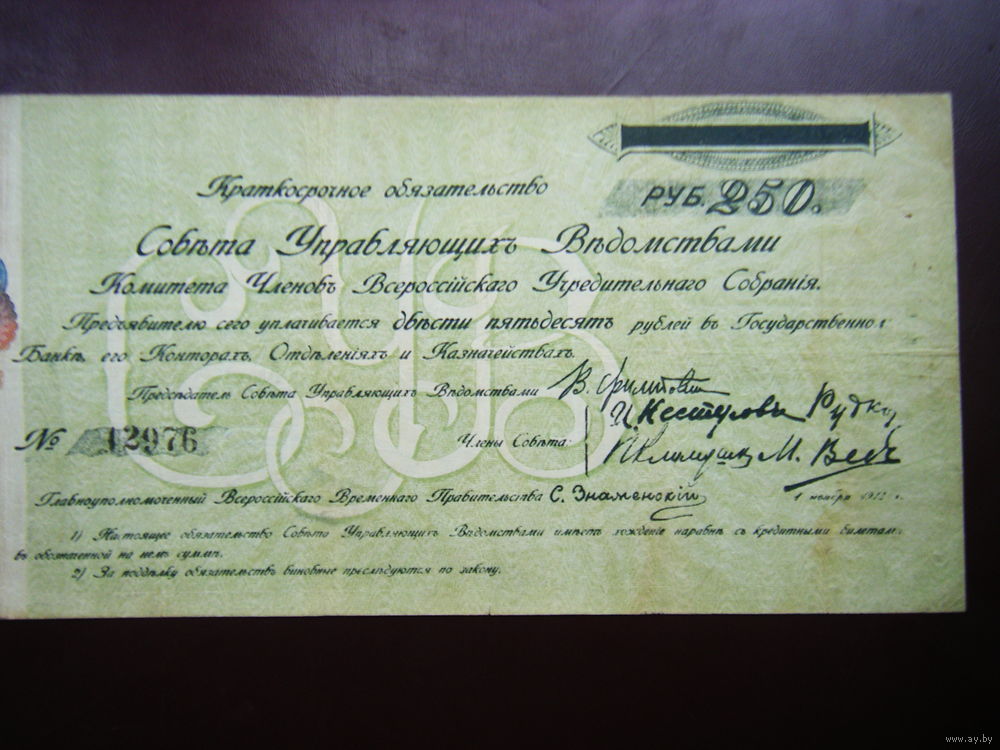 Краткосрочное обязательство
РУБ. 250.
Совѣта Управляющихъ Вѣдомствами
Комитета Членовъ Всероссійскаго Учредительнаго Собранія.
Предъявителю сего уплачивается двѣсти пятьдесятъ рублей въ Государственно
Банкѣ его Конторахъ, Отдѣленіяхъ и Казначействахъ.
Предсѣдатель Совѣта Управляющихъ Вѣдомствами
И. Нестеровъ Рудко
№ 12976
Члены Совѣта:
М. Вед
Главноуполномоченный Всероссійскаго Временнаго Правительства С. Знаменскій
1 ноября г.
1) Настоящее обязательство Совѣта Управляющихъ Вѣдомствами имѣетъ хожденіе наравнѣ съ кредитными билетам
въ обозначенной на немъ суммѣ.
2) За поддѣлку обязательствъ виновные преслѣдуются по закону.
www.ay.by